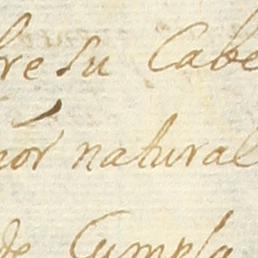 bre su Cabe
nor natural
de Cumpla